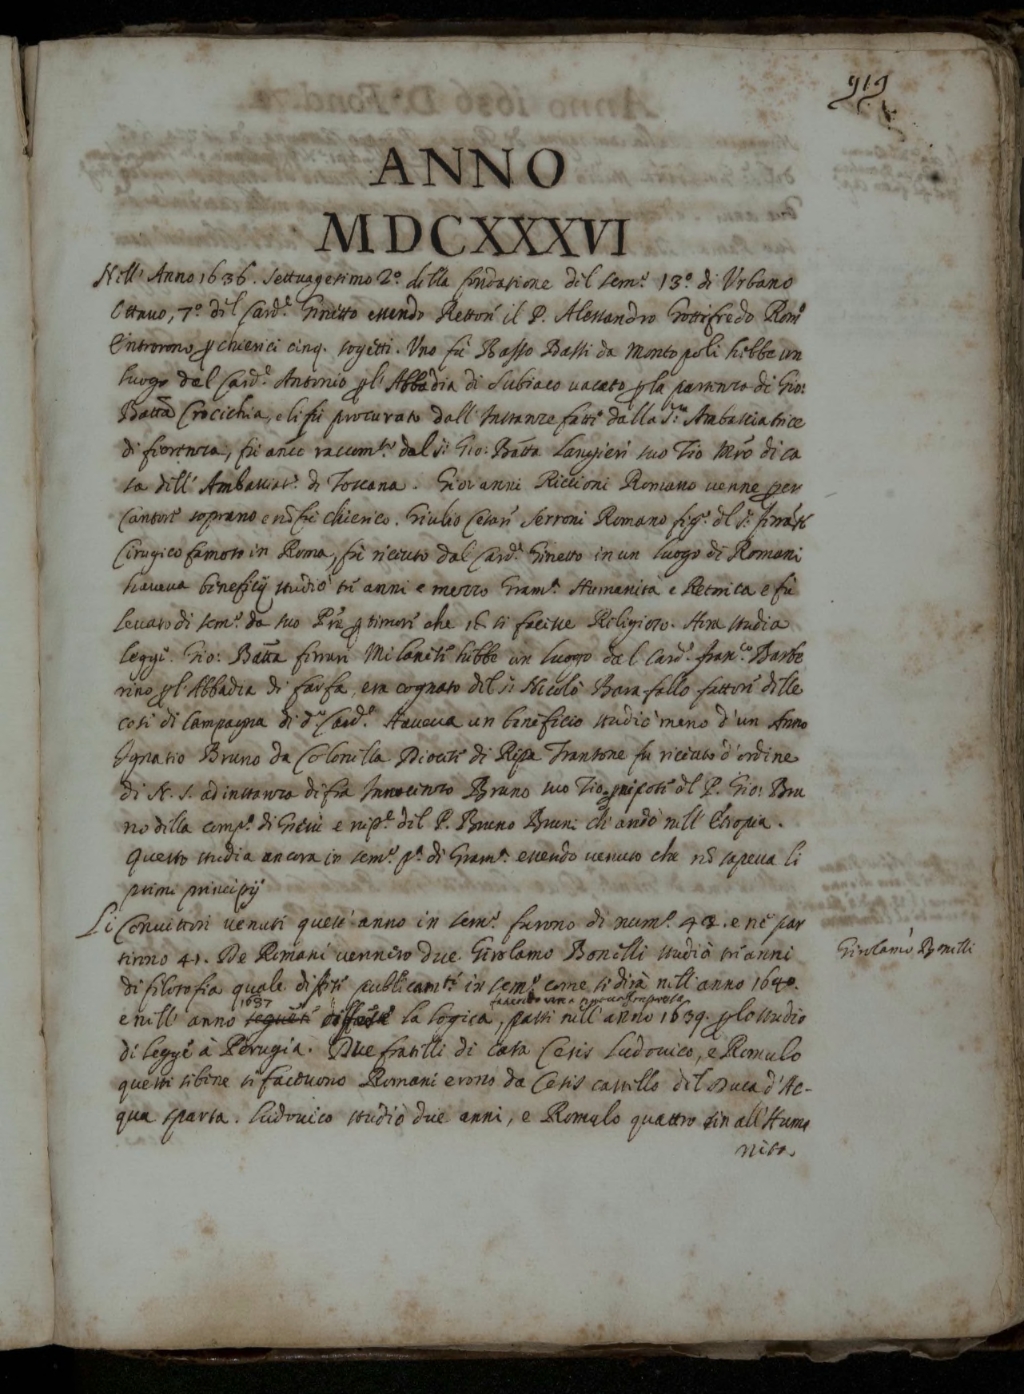 919
ANNO
MDCXXXVI
Nell' Anno 1636. settuagesimo 2º della fondatione del sem.º 13º di Urbano
Ottavo, 7º del Card.e Ginetto essendo Rettore il P. Alessandro Gottifredo Rom.º
Entrorono p chierici cinq. sogetti. Uno fù Basso Bassi da Montopoli hebbe un
luogo dal Card.e Antonio p l'Abbadia di Subiaco vacato p la partenza di Gio:
Batta Crocichia, e li fù procurato dall'Instanze fatte dalla S.ra Ambasciatrice
di fiorenza, fù anco raccom.to dal S.r Gio: Batta Langieri suo Tio Mro di ca
sa dell' Ambasciat.e di Toscana. Giovanni Riccioni Romano venne per
Cantore soprano e nō fù chierico. Giulio Cesare Serroni Romano fig.º del S.r
Cirugico famoso in Roma, fù riceuto dal Card.e Ginetto in un luogo di Romani
haveva beneficij studiò tre anni e mezzo Gram.a Humanita e Retorica e fù
levato di sem.º da suo Pre p timore che nō si facesse Religioso. Hora studia
legge. Gio: Batta ferrari Milanese hebbe un luogo dal Card.e fran.co Barbe
rino p l'Abbadia di farfa, era cognato del S.r Nicolò Barafallo fattore delle
cose di Campagna di d.º Card.e Haveva un beneficio studiò meno d'un Anno
Ignatio Bruno da Colonella Diocese di Ripa Transone fu riceuto d'ordine
di N. S. ad instanza di fra Innocenzo Bruno suo Tio, nipote del P. Gio: Bru
no della comp.a di Giesù e nip.e del P. Bruno Bruni ch' andò nell' Etiopia.
Questo studia ancora in sem.º p.a di Gram.a essendo venuto che nō sapeva li
primi principij
Li Convittori venuti quest' anno in sem.º furono di num.º 42. e ne par
tirno 41. De Romani vennero due. Girolamo Bonelli studiò tre anni
Girolamo Bonelli
di filosofia quale difese publicam.te in sem.º come si dirà nell' anno 1640.
1637 facendo una nuova impresa
e nell' anno seguente difese la logica, partì nell' anno 1639. p lo studio
di legge à Perugia. Due fratelli di casa Cesis Ludovico, e Romulo
questi sibene si facevono Romani erono da Cesis castello del Duca d'Ac-
qua sparta. Ludovico studiò due anni, e Romulo quattro sin all' Huma
nita.